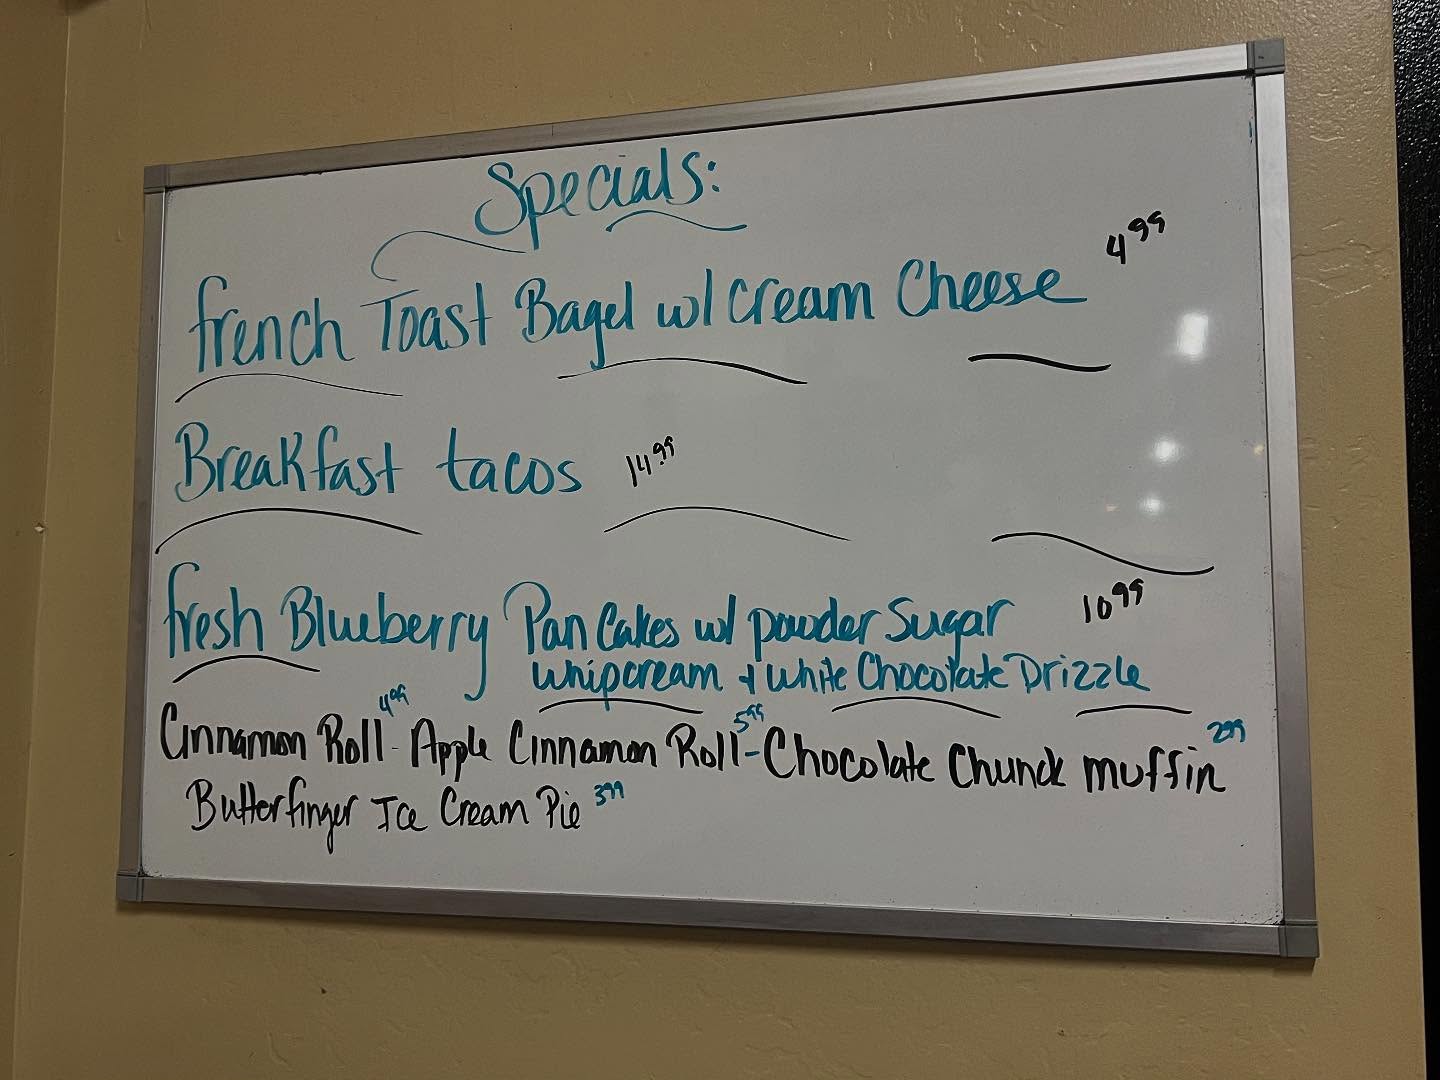 Specials:
french Toast Bagel w/ cream Cheese 4.99
Breakfast tacos 14.99
fresh Blueberry Pancakes w/ powder Sugar 10.99
whipcream + White Chocolate Drizzle
Cinnamon Roll 4.99 - Apple Cinnamon Roll 5.99 - Chocolate Chunck muffin 2.99
Butterfinger Ice Cream Pie 3.99